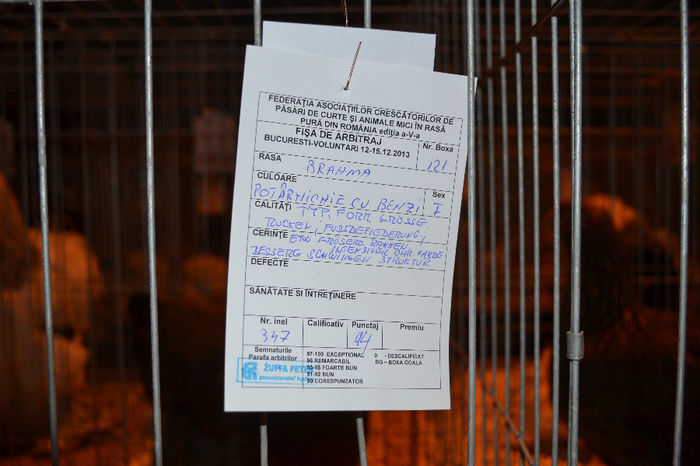 FEDERAȚIA ASOCIAȚIILOR CRESCĂTORILOR DE
PĂSĂRI DE CURTE ȘI ANIMALE MICI ÎN RASĂ
PURĂ DIN ROMÂNIA ediția a-V-a
FIȘA DE ARBITRAJ
BUCUREȘTI-VOLUNTARI 12-15.12.2013
Nr. Boxa
121
RASA
BRAHMA
CULOARE
Sex
POTÂRNICHIE CU BENZI
I
CALITĂȚI TYP, FORM GRÖSSE
RUCKEN, FUSSBEFIEDERUNG,
CERINȚE ETW. GRÖSERE RAHMEN
INTENSIVER OHR FARBE
BESSERE SCHWINGEN STRUKTUR
DEFECTE
SĂNĂTATE SI ÎNTREȚINERE
Nr. inel
Calificativ
Punctaj
Premiu
347
94
Semnaturile
Parafa arbitrilor
ZUFFA PETER
97-100 EXCEPTIONAL
96 REMARCABIL
93-95 FOARTE BUN
91-92 BUN
90 CORESPUNZATOR
0 - DESCALIFICAT
BG - BOXA GOALA